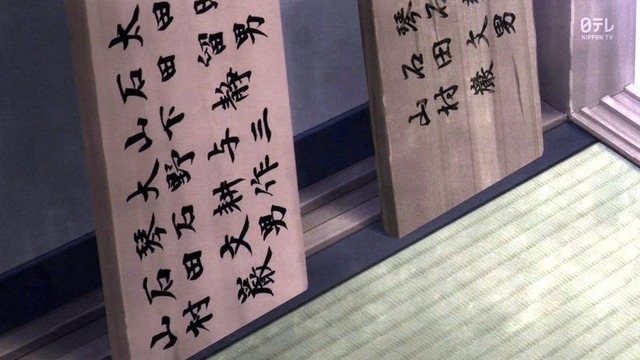 太田
石田留男
山下静
大野与三
琴石耕作
石田文男
山村巌
琴石
石田文男
山村巌
日テレ
NIPPON TV